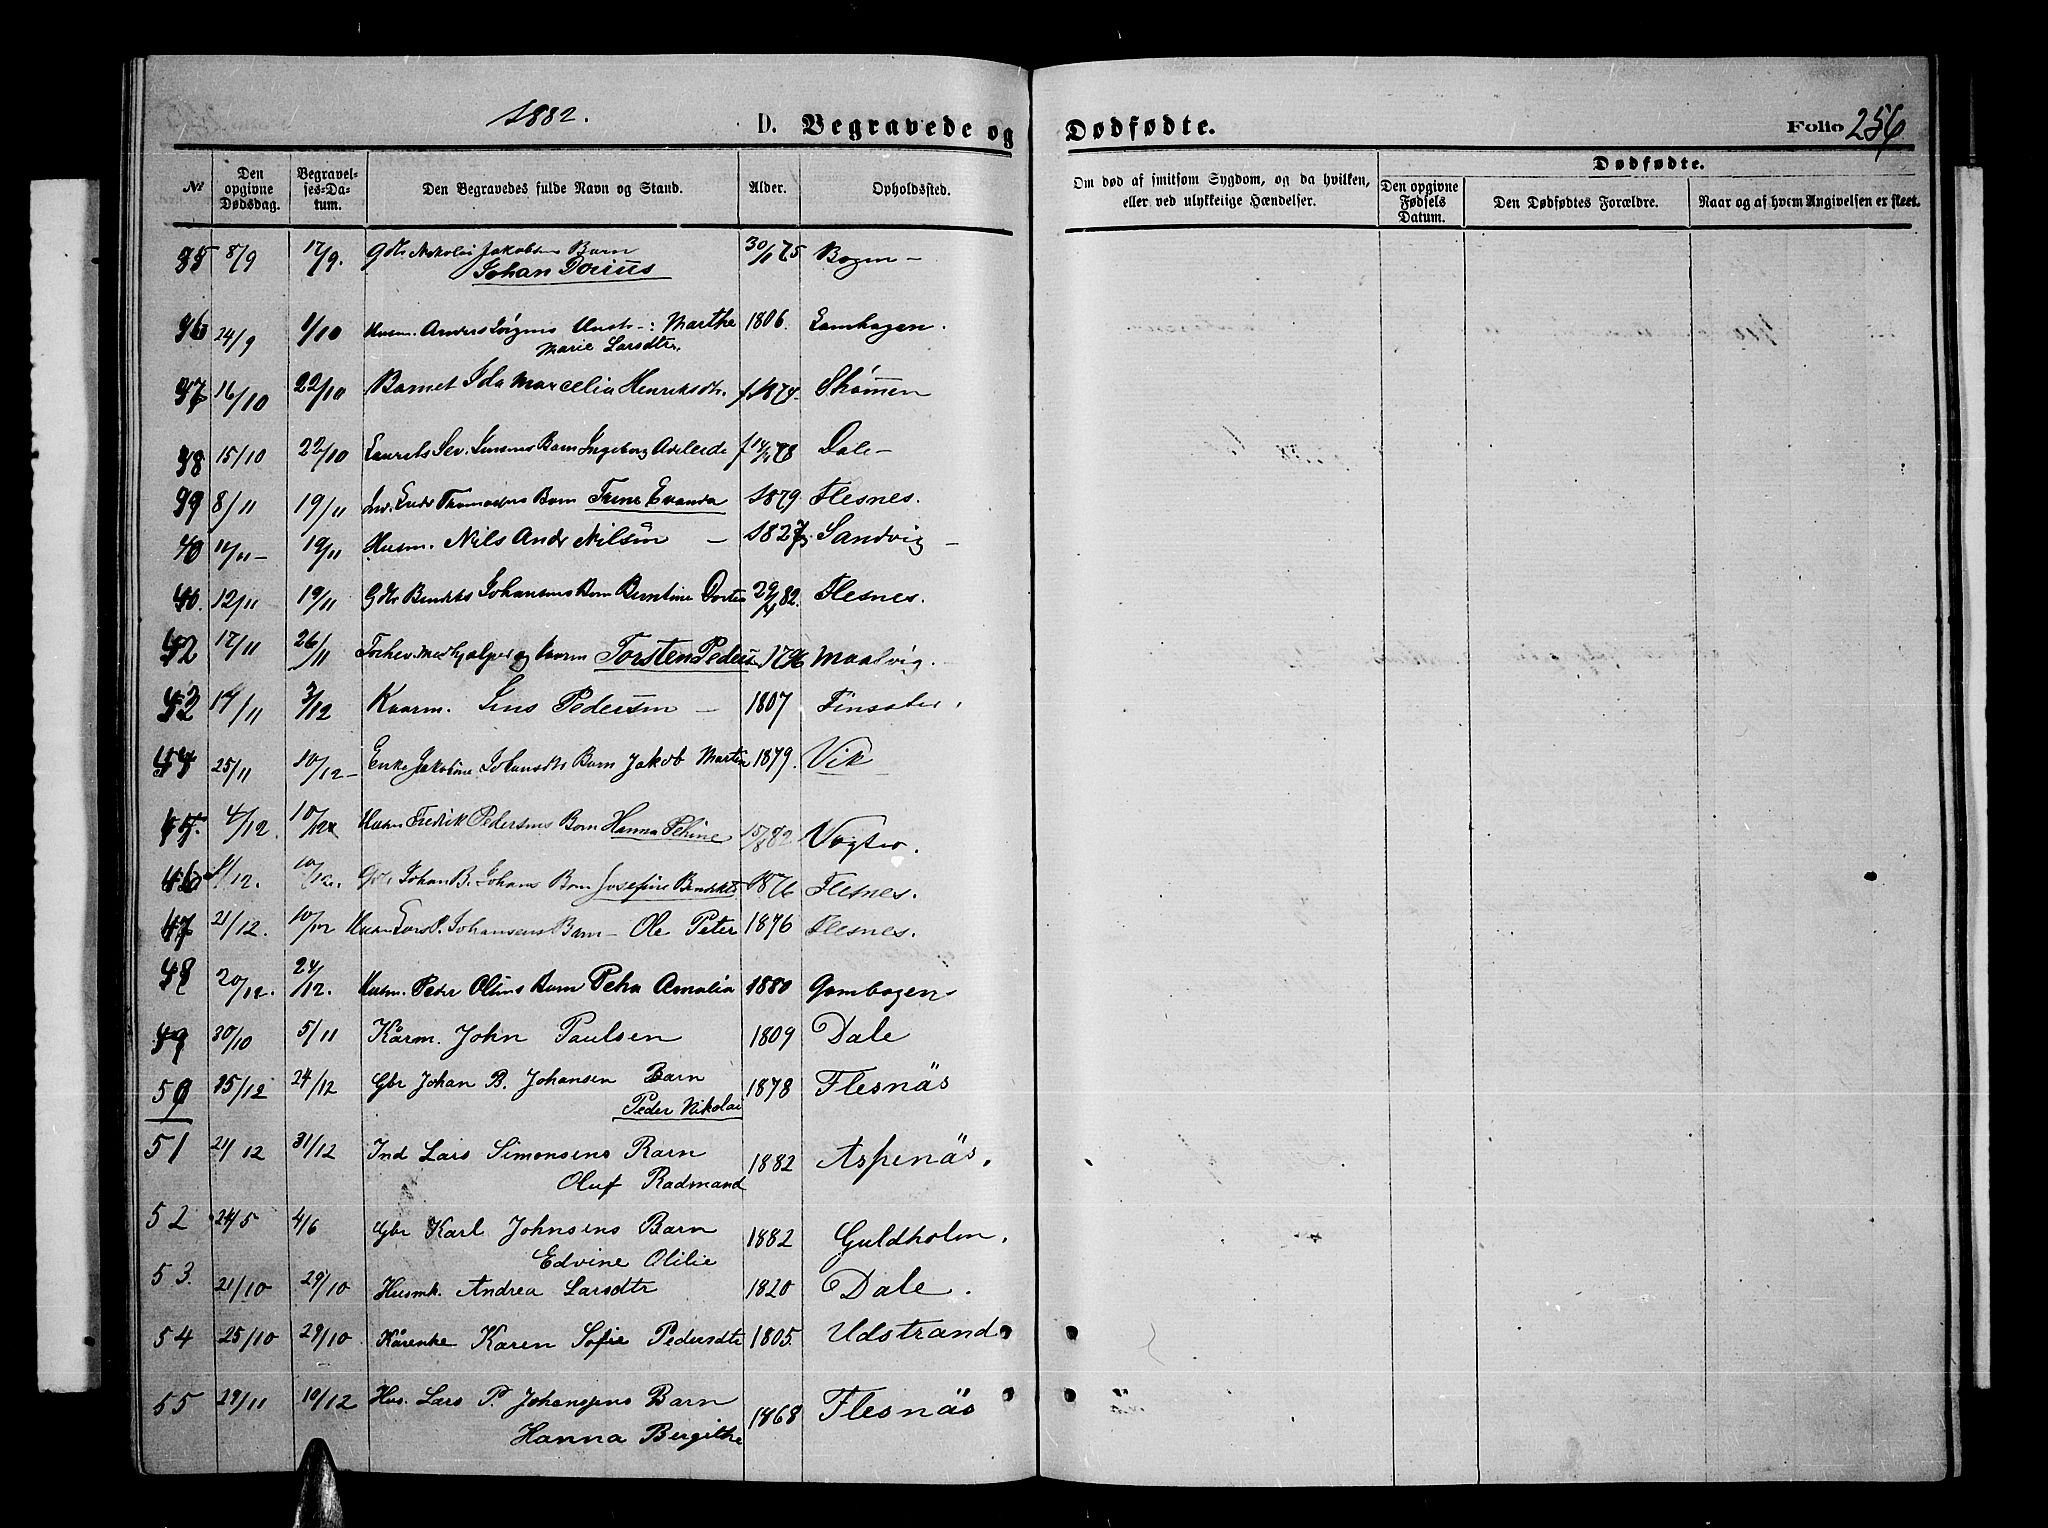 1882. D. Begravede og Dødfødte. Folio 256
№ Den opgivne Dødsdag. Begravelses-Datum. Den Begravedes fulde Navn og Stand. Alder. Opholdssted. Om død af smitsom Sygdom, og da hvilken, eller ved ulykkelige Hændelser. Dødfødte. Den opgivne Fødsels Datum. Den Dødfødtes Forældre. Naar og af hvem Angivelsen er skeet.
35 8/9 17/9. Gbr Nikolai Jakobsens Barn 30/1 75 Bogen –
Johan Dorius
36 24/9 1/10 Husm. Anders Marthe 1806.
Marie Larsdtr.
37 16/10 22/10 Barnet Ida Marcelia Henriksdtr. f. 1874
38 15/10 22/10 Laurits Sev. Jensens Barn Ingeborg 78 Dale –
39 8/11 19/11 Barn Trine Evanda 1879 Flesnes.
40 14/11 – 19/11 Husm. Nils Andr Nilsen – 1827 Sandvig –
12/11 19/11 Gbr Johansens Barn Berntine 82. Flesnes.
42 17/11 26/11 Torsten Peders Maalvig.
17/11 3/12 Kaarm. Jens Pedersen – 1807
44 25/11 10/12 – Enke Jakobine Johansdtr Barn Jakob Martin 1879. Vik
45. 4/12. 10/12 Husm Fredrik Pedersens Barn Hanna Petrine 82
46 /12. 10/12. Gbr Johan B. Johans Barn Josefine 1876 Flesnes.
47 21/12. Husm Lars P. Johansens Barn – Ole Peter 1876 Flesnes.
48 20/12. 24/12. Husm. Peder Olsens Barn Petra Amalia 1880
49 30/10 5/11 Kårm. John Paulsen 1809 Dale
50 15/12 24/12 Gbr Johan B. Johansen Barn 1878 Flesnäs
Peder Nikolai
51 21/12 31/12 Ind Lars Simonsens Barn 1882 Aspenäs.
Oluf Radmand
52 24/5 4/6 Gbr Karl Johnsens Barn 1882 Guldholm.
Edvine Otilie
53. 21/10 29/10 Husmk. Andrea Larsdtr 1820 Dale.
54 25/10 29/10 Kårenke Karen Sofie Pedersdtr 1805. Udstrand
55 29/11 10/12 Hus. Lars P. Johanssens Barn 1868 Flesnäs
Hanna Bergithe